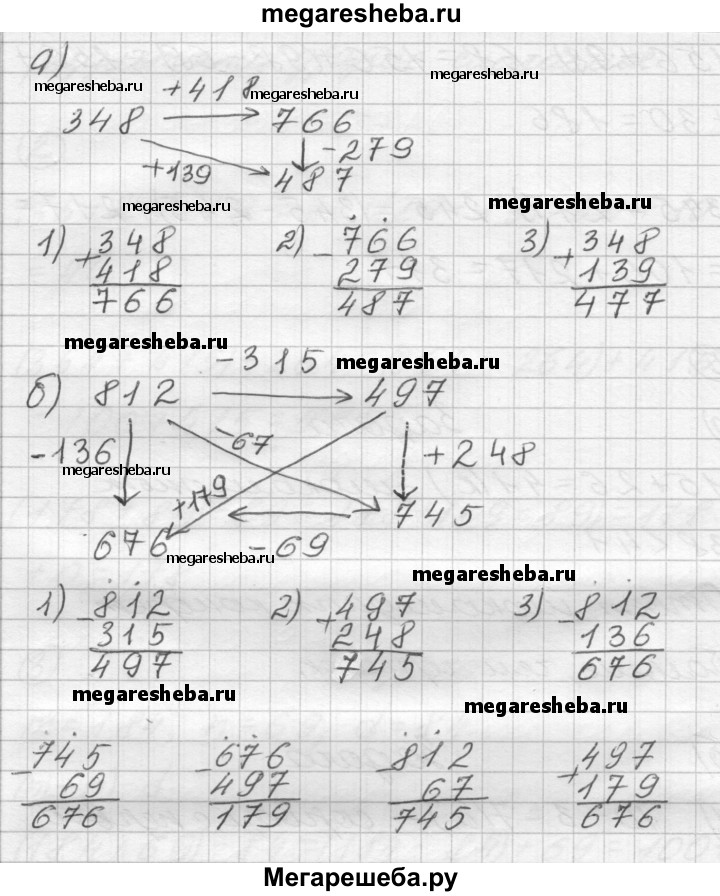 megaresheba.ru
а)
megaresheba.ru +418 megaresheba.ru megaresheba.ru
348 → 766
↓ -279
+139 487
megaresheba.ru megaresheba.ru
1) + 348 2) - 766 3) + 348
418 279 139
766 487 477
megaresheba.ru -315 megaresheba.ru
б) 812 → 497
-136 -67 +248
megaresheba.ru
+179 745
676 ← -69
megaresheba.ru megaresheba.ru
1) - 812 2) + 497 3) - 812
315 248 136
497 745 676
megaresheba.ru megaresheba.ru
- 745 - 676 - 812 + 497
69 497 67 179
676 179 745 676
Мегарешеба.ру